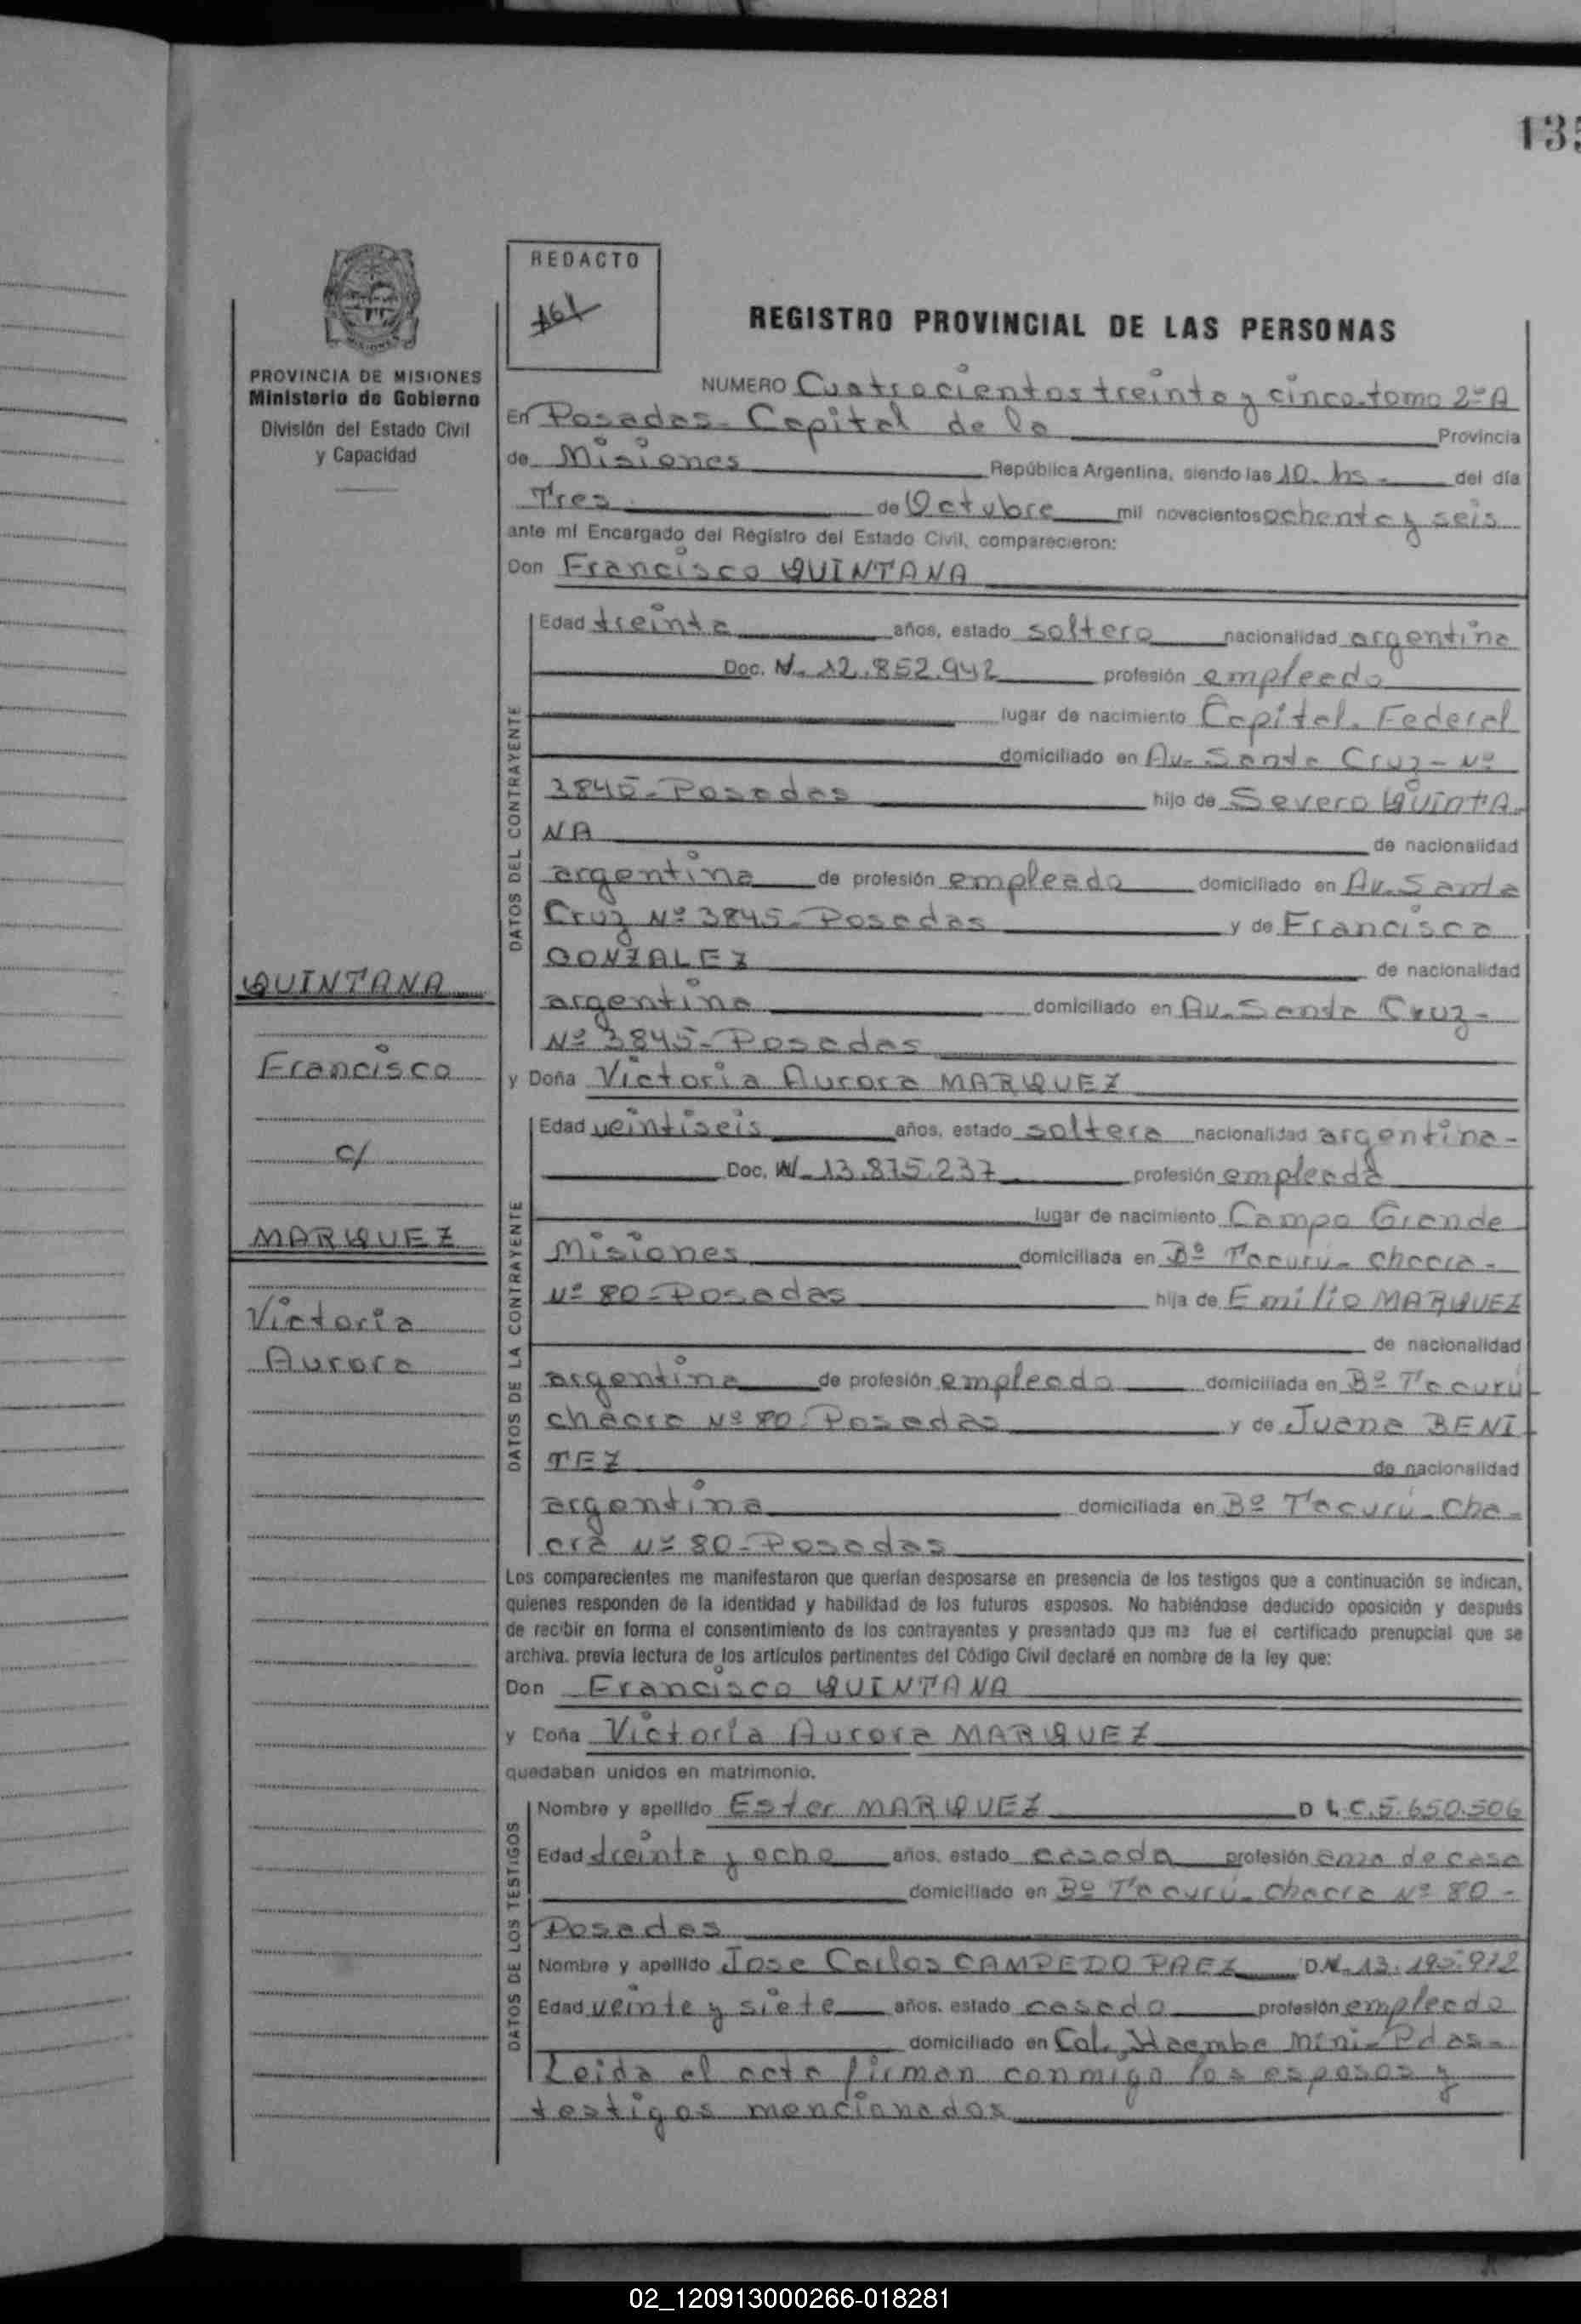 135
REDACTO
REGISTRO PROVINCIAL DE LAS PERSONAS
PROVINCIA DE MISIONES
Ministerio de Gobierno
División del Estado Civil
y Capacidad
NUMERO Cuatrocientos treinta y cinco tomo 2º A
En Posadas - Capital de la Provincia
de Misiones República Argentina, siendo las 10 hs - del día
Tres de Octubre mil novecientos ochenta y seis
ante mí Encargado del Registro del Estado Civil, comparecieron:
Don Francisco QUINTANA
DATOS DEL CONTRAYENTE
Edad treinta años, estado soltero nacionalidad argentina
Doc. N. 12.852.942 profesión empleado
lugar de nacimiento Capital Federal
domiciliado en Av. Santa Cruz - Nº
3845 - Posadas hijo de Severo QUINTA
NA de nacionalidad
argentina de profesión empleado domiciliado en Av. Santa
Cruz Nº 3845 - Posadas y de Francisca
GONZALEZ de nacionalidad
argentina domiciliado en Av. Santa Cruz -
Nº 3845 - Posadas
QUINTANA
Francisco
c/
MARQUEZ
Victoria
Aurora
y Doña Victoria Aurora MARQUEZ
DATOS DE LA CONTRAYENTE
Edad veintiseis años, estado soltera nacionalidad argentina -
Doc. N. 13.875.237 profesión empleada
lugar de nacimiento Campo Grande
Misiones domiciliada en Bº Tacurú - chacra -
Nº 80 - Posadas hija de Emilio MARQUEZ
de nacionalidad
argentina de profesión empleado domiciliada en Bº Tacurú
chacra Nº 80 - Posadas y de Juana BENI
TEZ de nacionalidad
argentina domiciliada en Bº Tacurú - Cha -
cra Nº 80 - Posadas
Los comparecientes me manifestaron que querían desposarse en presencia de los testigos que a continuación se indican,
quienes responden de la identidad y habilidad de los futuros esposos. No habiéndose deducido oposición y después
de recibir en forma el consentimiento de los contrayentes y presentado que me fue el certificado prenupcial que se
archiva. previa lectura de los artículos pertinentes del Código Civil declaré en nombre de la ley que:
Don Francisco QUINTANA
y Doña Victoria Aurora MARQUEZ
quedaban unidos en matrimonio.
DATOS DE LOS TESTIGOS
Nombre y apellido Ester MARQUEZ D L.C. 5.650.506
Edad treinta y ocho años, estado casada profesión ama de casa
domiciliado en Bº Tacurú - chacra Nº 80 -
Posadas
Nombre y apellido Jose Carlos CAMPEDO PAEZ D.N. 13.195.912
Edad veinte y siete años, estado casado profesión empleado
domiciliado en Col. Itaembe Mini - Pdas -
Leida el acta firman conmigo los esposos y
testigos mencionados
02_120913000266-018281